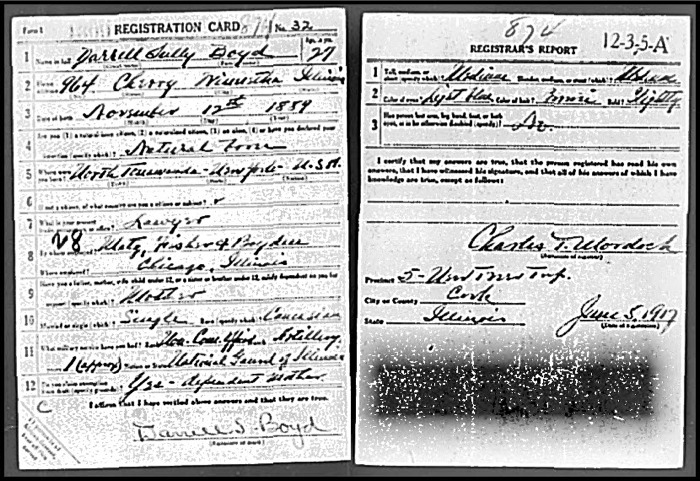 Form 1 REGISTRATION CARD 874 No. 32
1 Name in full Darrell Sully Boyd Age, in yrs. 27
2 Home 964 Cherry Winnetka Illinois
3 Date of birth November 12th 1889
4 Are you (1) a natural-born citizen, (2) a naturalized citizen, (3) an alien, (4) or have you declared your
intention (specify which)? Natural born
5 Where were you born? North Tonawanda - New York - U.S.A.
6 If not a citizen, of what country are you a citizen or subject?
7 What is your present trade, occupation, or office? Lawyer
8 By whom employed? Fisher & Boyden
Where employed? Chicago, Illinois
9 Have you a father, mother, wife, child under 12, or a sister or brother under 12, solely dependent on you for
support (specify which)? Mother
10 Married or single (which)? Single Race (specify which)? Caucasian
11 What military service have you had? Rank Non. Com. Officer branch Artillery
years 1 (approx) Nation or State National Guard of Illinois
12 Do you claim exemption from draft (specify grounds)? Yes - dependent mother
I affirm that I have verified above answers and that they are true.
Darrell S. Boyd
(Signature or mark)
874
REGISTRAR'S REPORT 12-3,5-A
1 Tall, medium, or short (specify which)? Medium Slender, medium, or stout (which)? Medium
2 Color of eyes? Light Blue Color of hair? Brown Bald? Slightly
3 Has person lost arm, leg, hand, foot, or both
eyes, or is he otherwise disabled (specify)? No
I certify that my answers are true, that the person registered has read his own
answers, that I have witnessed his signature, and that all of his answers of which I have
knowledge are true, except as follows:
Charles T. Murdock
(Signature of registrar)
Precinct 5 - New Trier Twp.
City or County Cook
State Illinois June 5, 1917
(Date of registration)